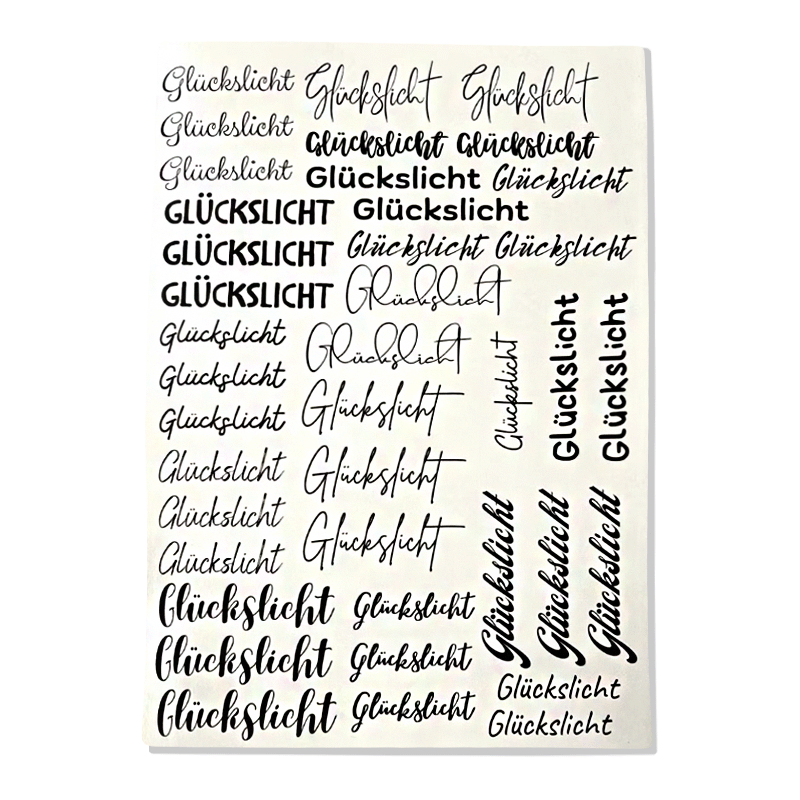 Glückslicht Glückslicht Glückslicht
Glückslicht Glückslicht Glückslicht
Glückslicht Glückslicht Glückslicht
GLÜCKSLICHT Glückslicht
GLÜCKSLICHT Glückslicht Glückslicht
GLÜCKSLICHT Glückslicht
Glückslicht Glückslicht
Glückslicht Glückslicht
Glückslicht
Glückslicht Glückslicht
Glückslicht Glückslicht
Glückslicht
Glückslicht Glückslicht
Glückslicht Glückslicht
Glückslicht Glückslicht
Glückslicht
Glückslicht
Glückslicht
Glückslicht
Glückslicht
Glückslicht
Glückslicht
Glückslicht